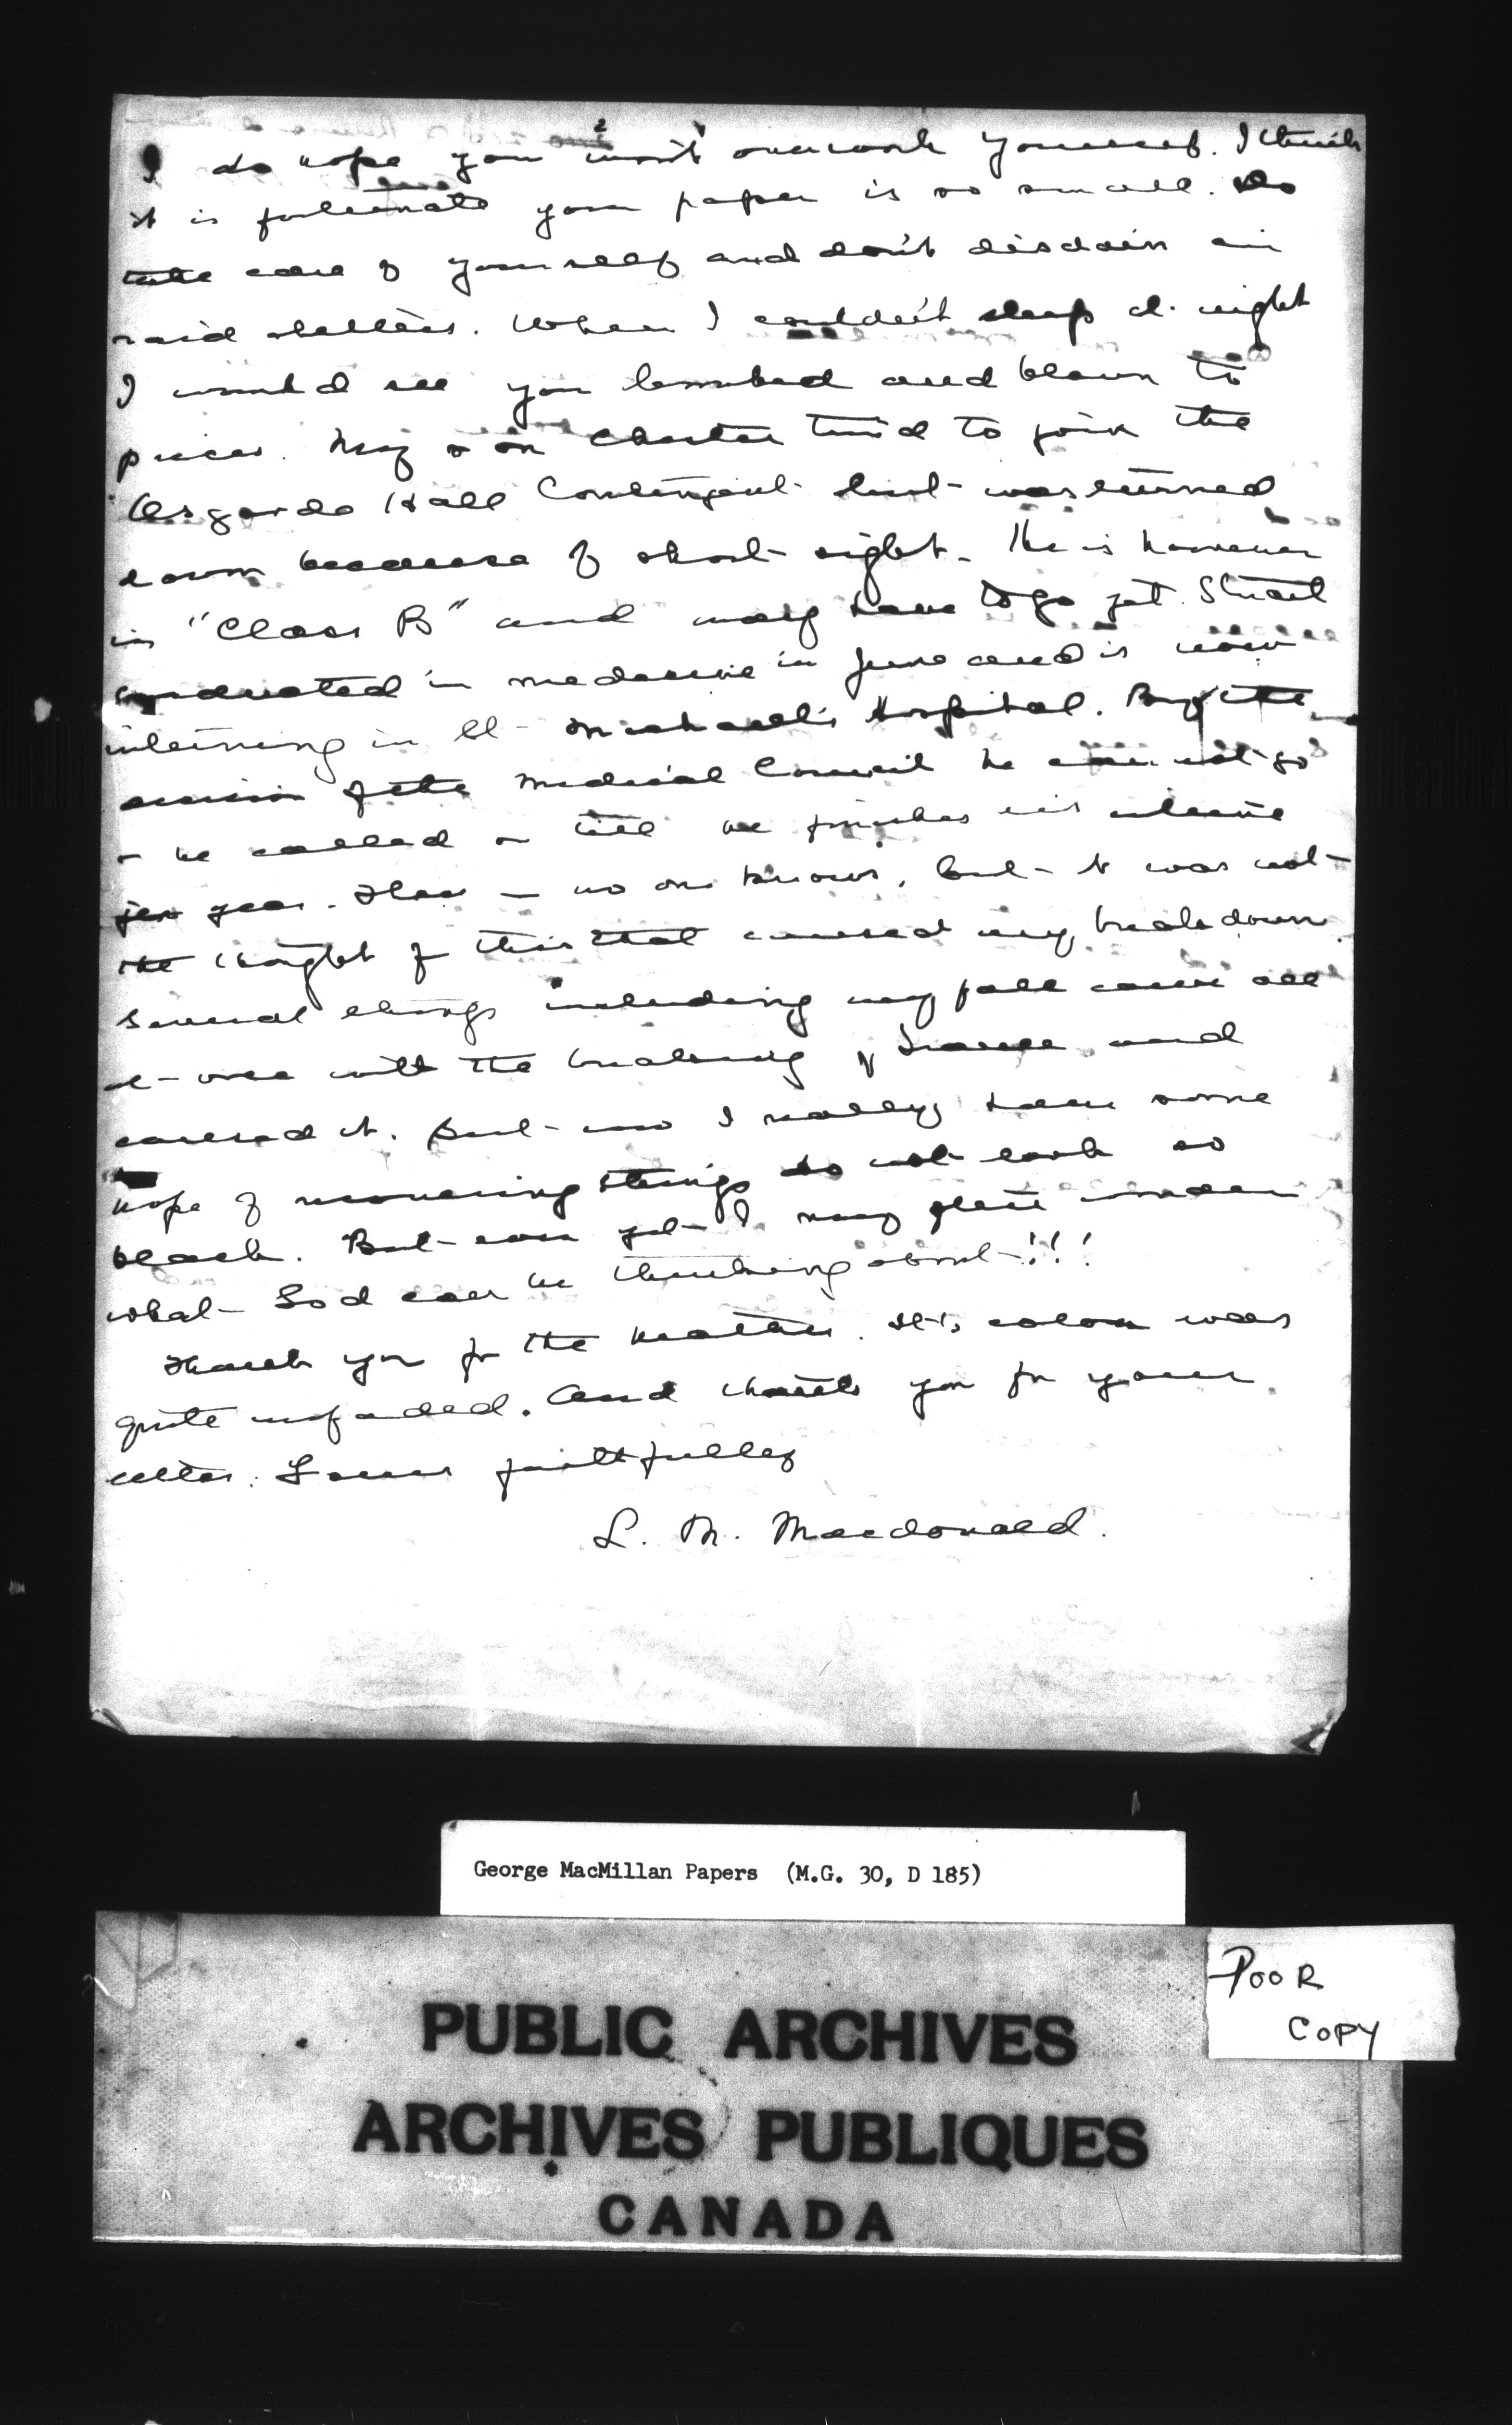 2
I do hope you won't overwork yourself. I think
it is fortunate your paper is so small. Do
take care of yourself and don't disdain air
raid shelters. When I couldn't sleep at night
I would see you bombed and blown to
pieces. My son Chester tried to join the
Osgoode Hall Contingent but was turned
down because of short sight. He is however
in "Class B" and may have to go yet. Stuart
graduated in medecine in June and is now
interning in St Michael's Hospital. By the
of the Medical Council he can not go
or be called on till he finishes his interne
year. Then — no one knows. But it was not
the thought of this that caused my breakdown.
Several things including my fall came all
at once with the breaking of France and
caused it. But now I really have some
hope of recovering things do not look so
black. But even yet I may
what God can be thinking about!!!
Thank you for the heather. Its color was
quite unfaded. And thanks you for your
letter. Yours faithfully
L. M. Macdonald.
George MacMillan Papers (M.G. 30, D 185)
POOR
COPY
PUBLIC ARCHIVES
ARCHIVES PUBLIQUES
CANADA